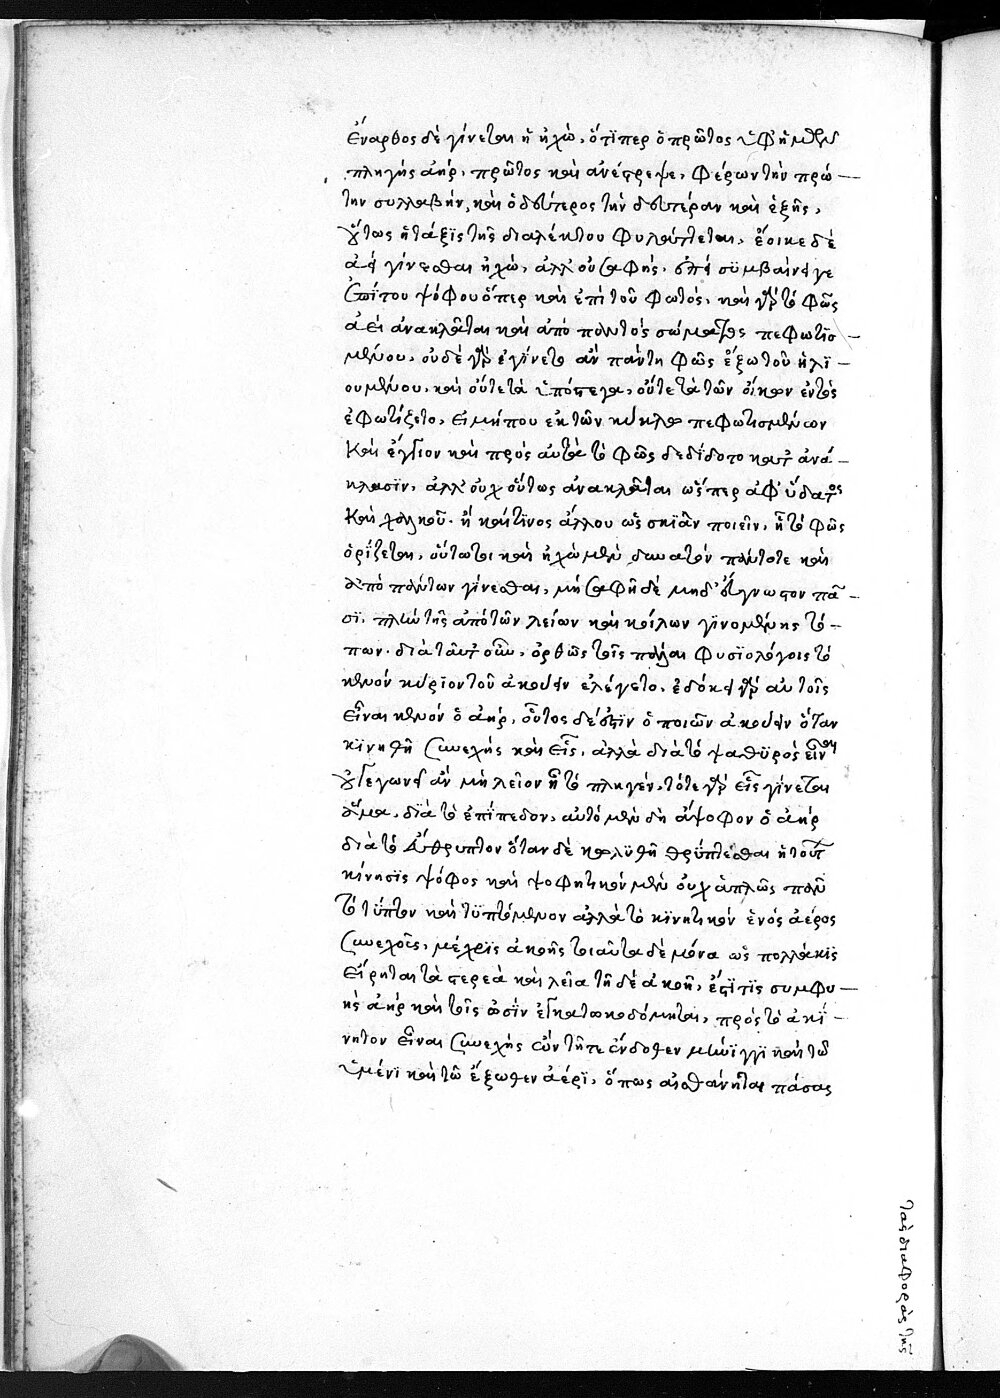 ἔναρθος δὲ γίνεται ἡ ἠχὼ, ὅτϊπερ ὁ πρῶτος ὑφ' ἡμῶν
πληγῆς ἀὴρ, πρῶτος καὶ ἀνέστρεψε, φέρων τὴν πρώ-
την συλλαβὴν, καὶ ὁ δεύτερος τὴν δευτέραν καὶ ἑξῆς,
οὕτως ἡ τάξϊς τῆς διαλέκτου φυλάττεται, ἔοικε δὲ
ἀεὶ γίνεσθαι ἠχὼ, ἀλλ' οὐ σαφής, ἐπεὶ συμβαίνει γε
ἐπῒ του ψόφου ὅπερ καὶ ἐπὶ τοῦ φωτός, καὶ γὰρ τὸ φῶς
ἀεὶ ἀνακλᾶται καὶ ἀπὸ παντὸς σώματος πεφωτϊσ-
μένου, οὐδὲ γὰρ ἐγίνετο ἂν πάντη φῶς ἔξω τοῦ ἡλϊ-
ουμένου, καὶ οὔτε τὰ ὑπόστεγα, οὔτε τὰ τῶν οἴκων ἐντὸς
ἐφωτίζετο, εἰ μήπου ἐκ τῶν κύκλω πεφωτισμένων
καὶ ἔγγιον καὶ πρὸς αὐτὰ τὸ φῶς δεδίδοτο κατ' ἀνά-
κλασϊν, ἀλλ' οὐχ οὕτως ἀνακλᾶται ὥσπερ ἀφ' ὕδατος
καὶ χαλκοῦ. ἤ καί τϊνος ἄλλου ὡς σκϊὰν ποιεῖν, ἧ τὸ φῶς
ὁρίζεται, οὕτωτοι καὶ ἠχὼ μὲν δυνατὸν πάντοτε καὶ
ἀπὸ πάντων γίνεσθαι, μὴ σαφῆ δὲ μηδ' εὔγνωστον πᾶ-
σϊ, πλὴν τῆς ἀπὸ τῶν λείων καὶ κοίλων γϊνομένης τό-
πων. διὰ ταῦτ' οὖν, ὀρθῶς τοῖς πάλαι φυσϊολόγοις τὸ
κενὸν κύριον τοῦ ἀκούειν ἐλέγετο, ἐδόκει γὰρ αὐτοῖς
εἶναι κενὸν ὁ ἀὴρ, οὗτος δέ ἐστϊν ὁ ποιῶν ἀκούειν ὅταν
κϊνηθῆ συνεχὴς καὶ εἷς, ἀλλὰ διὰ τὸ ψαθϋρὸς εἶναι
οὐ γεγωνεῖ ἂν μὴ λεῖον ᾖ τὸ πληγέν, τότε γὰρ εἷς γίνεται
ἅμα, διὰ τὸ ἐπίπεδον, αὐτὸ μὲν δὴ ἄψοφον ὁ ἀὴρ
διὰ τὸ εὔθρυπτον ὅταν δὲ κωλϋθῆ θρύπτεσθαι ἡ τούτου
κίνησϊς ψόφος καὶ ψοφητικὸν μὲν οὐχ ἁπλῶς πᾶν
τὸ τύπτον καὶ τϋπτόμενον ἀλλὰ τὸ κϊνητικὸν ἑνὸς ἀέρος
συνεχοῦς, μέχρϊς ἀκοῆς τοιαῦτα δὲ μόνα ὡς πολλάκϊς
εἴρηται τὰ στερεὰ καὶ λεῖα τῆ δὲ ἀκοῆ, ἔστϊ τϊς συμφυ-
ὴς ἀὴρ καὶ τοῖς ὠσὶν ἐγκατωκοδόμηται, πρὸς τὸ ἀκί-
νητον εἶναι συνεχὴς ὢν τῆτε ἔνδοθεν μήνϊγγϊ καὶ τῶ
ὑμένϊ καὶ τῶ ἔξωθεν ἀέρϊ, ὅπως αἰσθάνηται πάσας
τὰς διαφορὰς τῆς